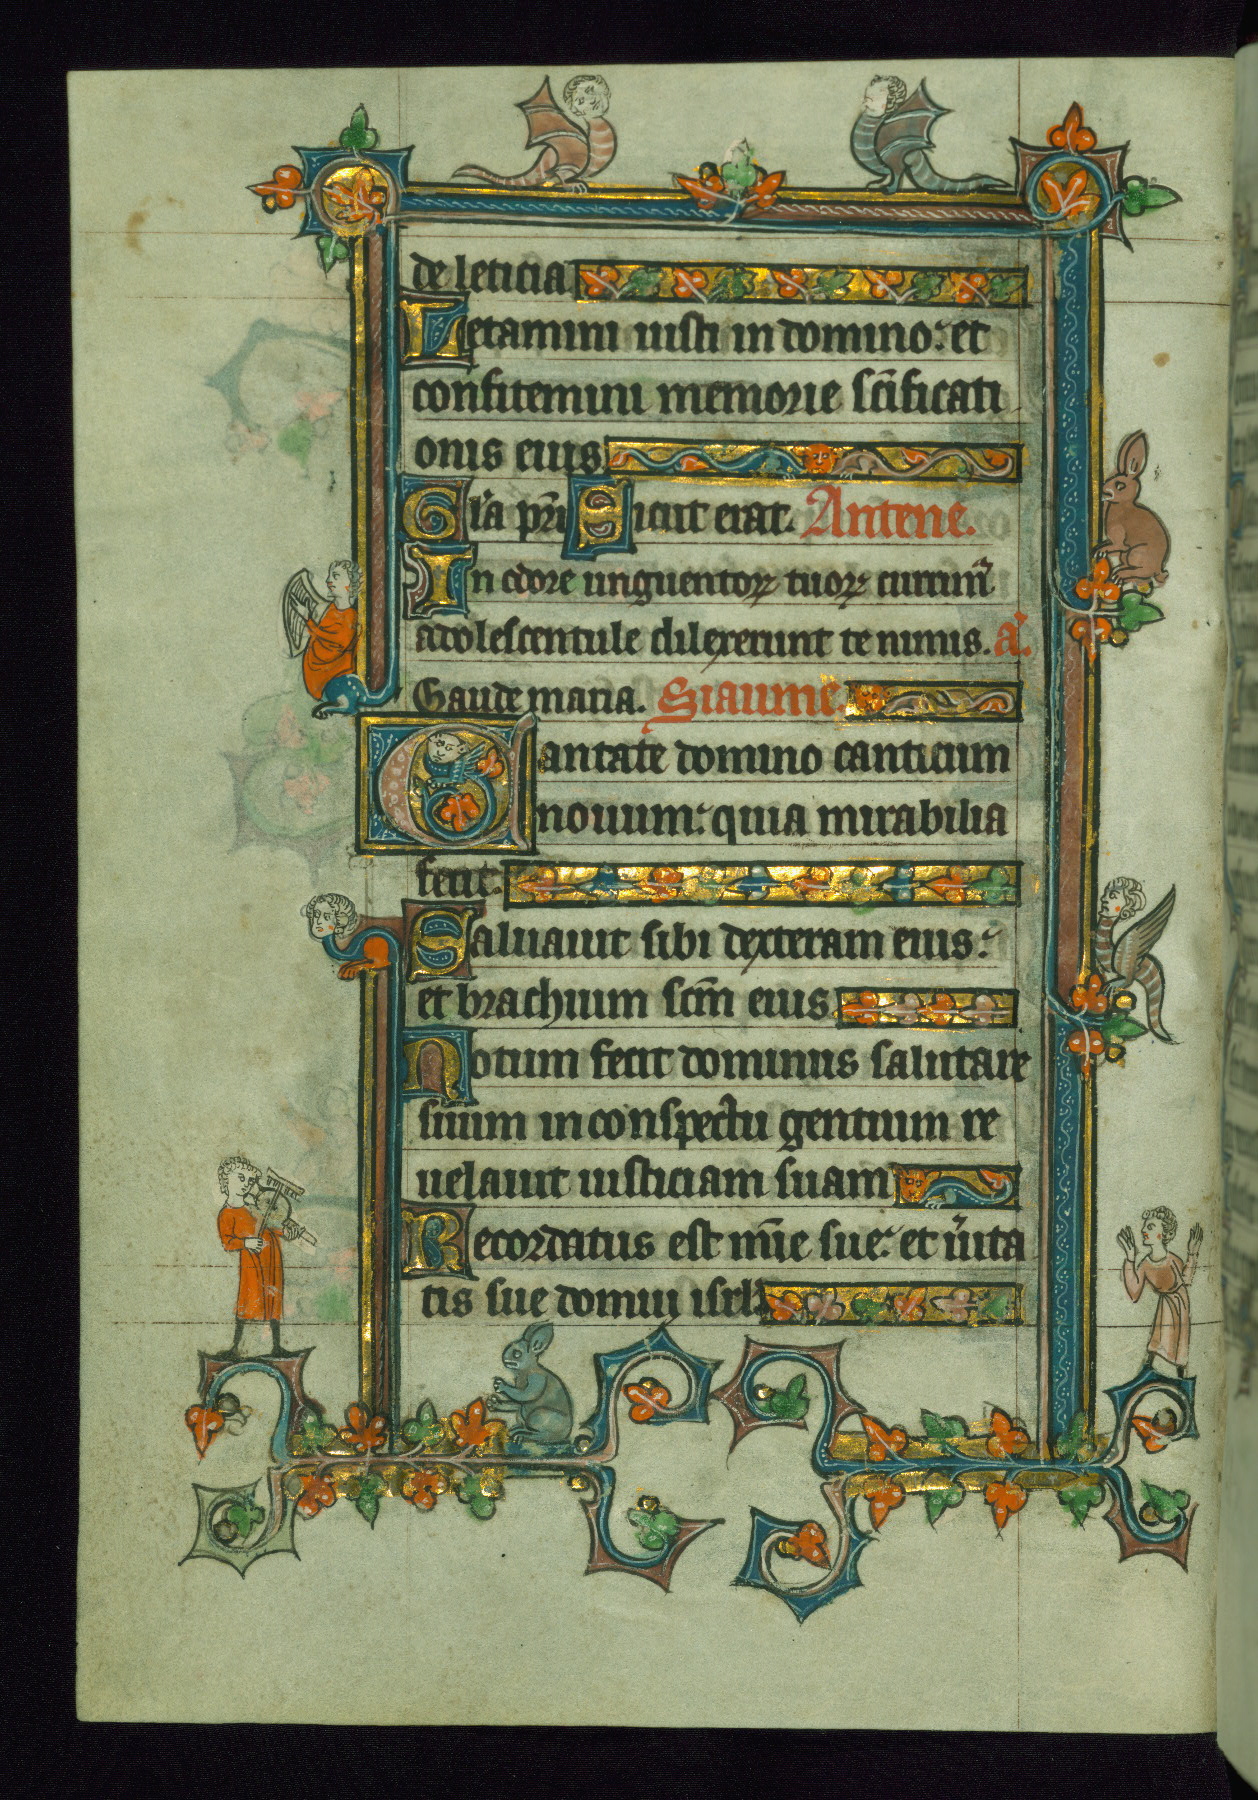 de leticia
Letamini iusti in domino: et
confitemini memorie scīficati
onis eius
Gl'a pr̄i Sicut erat. Antene.
In odore unguentoꝝ tuoꝝ currim᷒
adolescentule dilexerunt te nimis. a'.
Gaude maria. Siaume.
Cantate domino canticum
nouum: quia mirabilia
fecit.
Saluauit sibi dexteram eius:
et brachium scm̄ eius
Notum fecit dominus salutare
suum in conspectu gentium re
uelauit iusticiam suam
Recordatus est mīe sue: et u'ita
tis sue domui isrl'